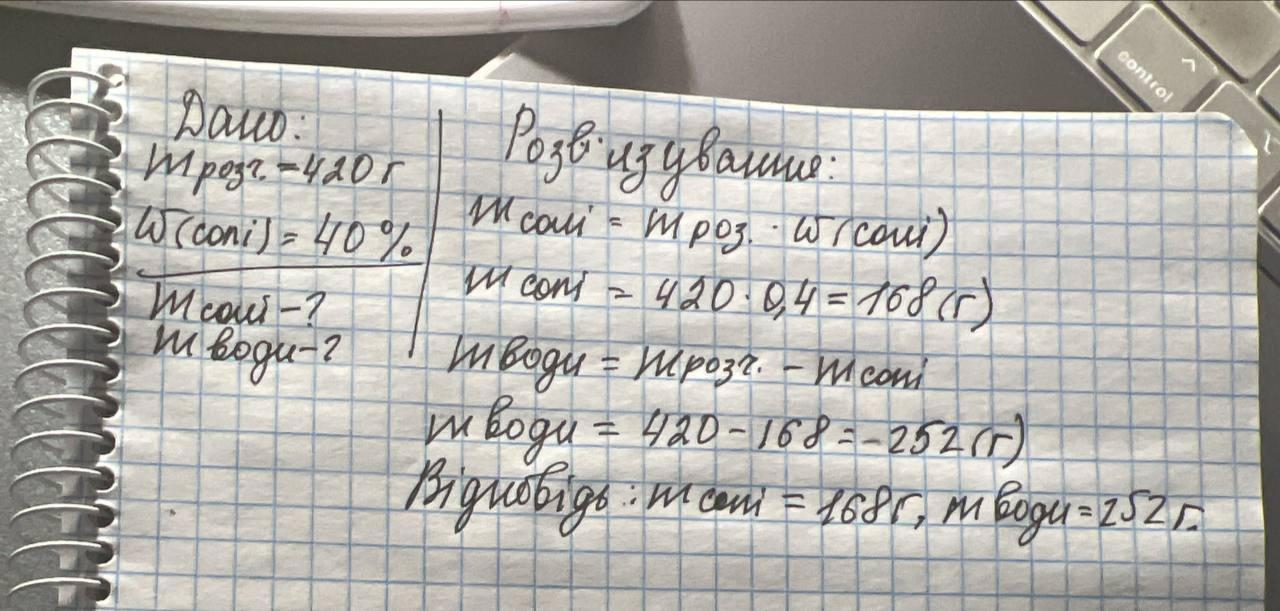 Дано:
m розч. = 420 г
W(солі) = 40 %
m солі - ?
m води - ?
Розв'язування:
m солі = m роз. · W(солі)
m солі = 420 · 0,4 = 168 (г)
m води = m розч. - m солі
m води = 420 - 168 = -252 (г)
Відповідь: m солі = 168 г, m води = 252 г.
control